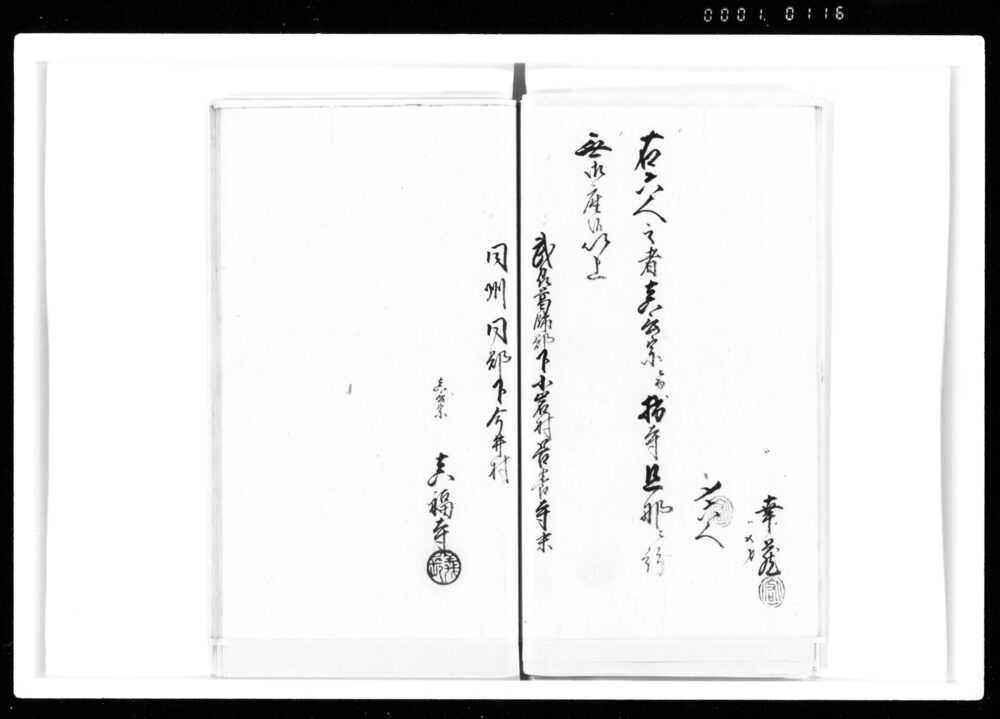 0001 0116
幸蔵
〆六人
右六人之者真言宗ニ而拙寺旦那ニ紛
無御座候以上
武州葛飾郡下小岩村善養寺末
同州同郡下今井村
真言宗
真福寺